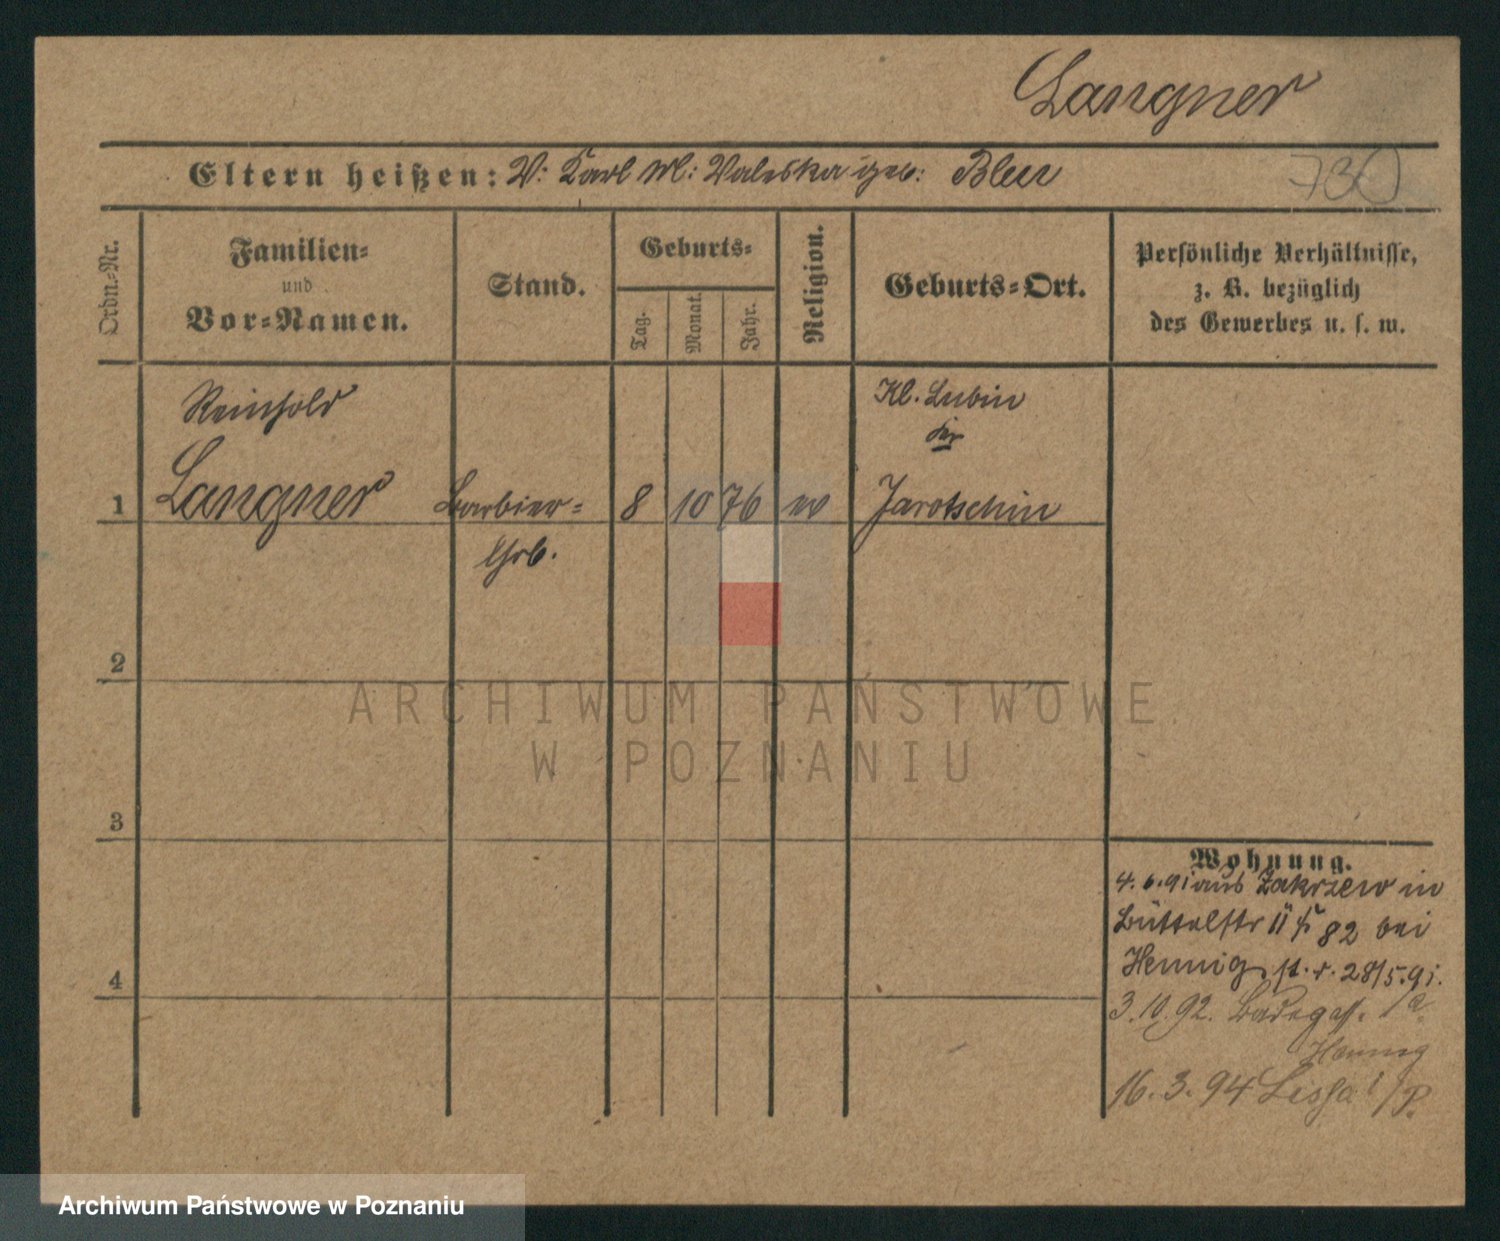 Langner
Eltern heißen: V: Karl M: Valeska geb:
730
Ordn.-Nr.
Familien-
und
Vor-Namen.
Stand.
Geburts-
Tag.
Monat.
Jahr.
Religion.
Geburts-Ort.
Persönliche Verhältnisse,
z. B. bezüglich
des Gewerbes u. s. w.
Reinhold
Kl. Lubin
Kr
1 Langner Barbier- 8 10 76 ev Jarotschin
2
ARCHIWUM PAŃSTWOWE
W POZNANIU
3
Wohnung.
4. 6. 91 aus Zakrzew in
Büttelstr 11 82 bei
Hennig. 28/5.91.
4
3.10.92. Badegass. 1a
Hennig
16.3.94 Lissa i/P.
Archiwum Państwowe w Poznaniu